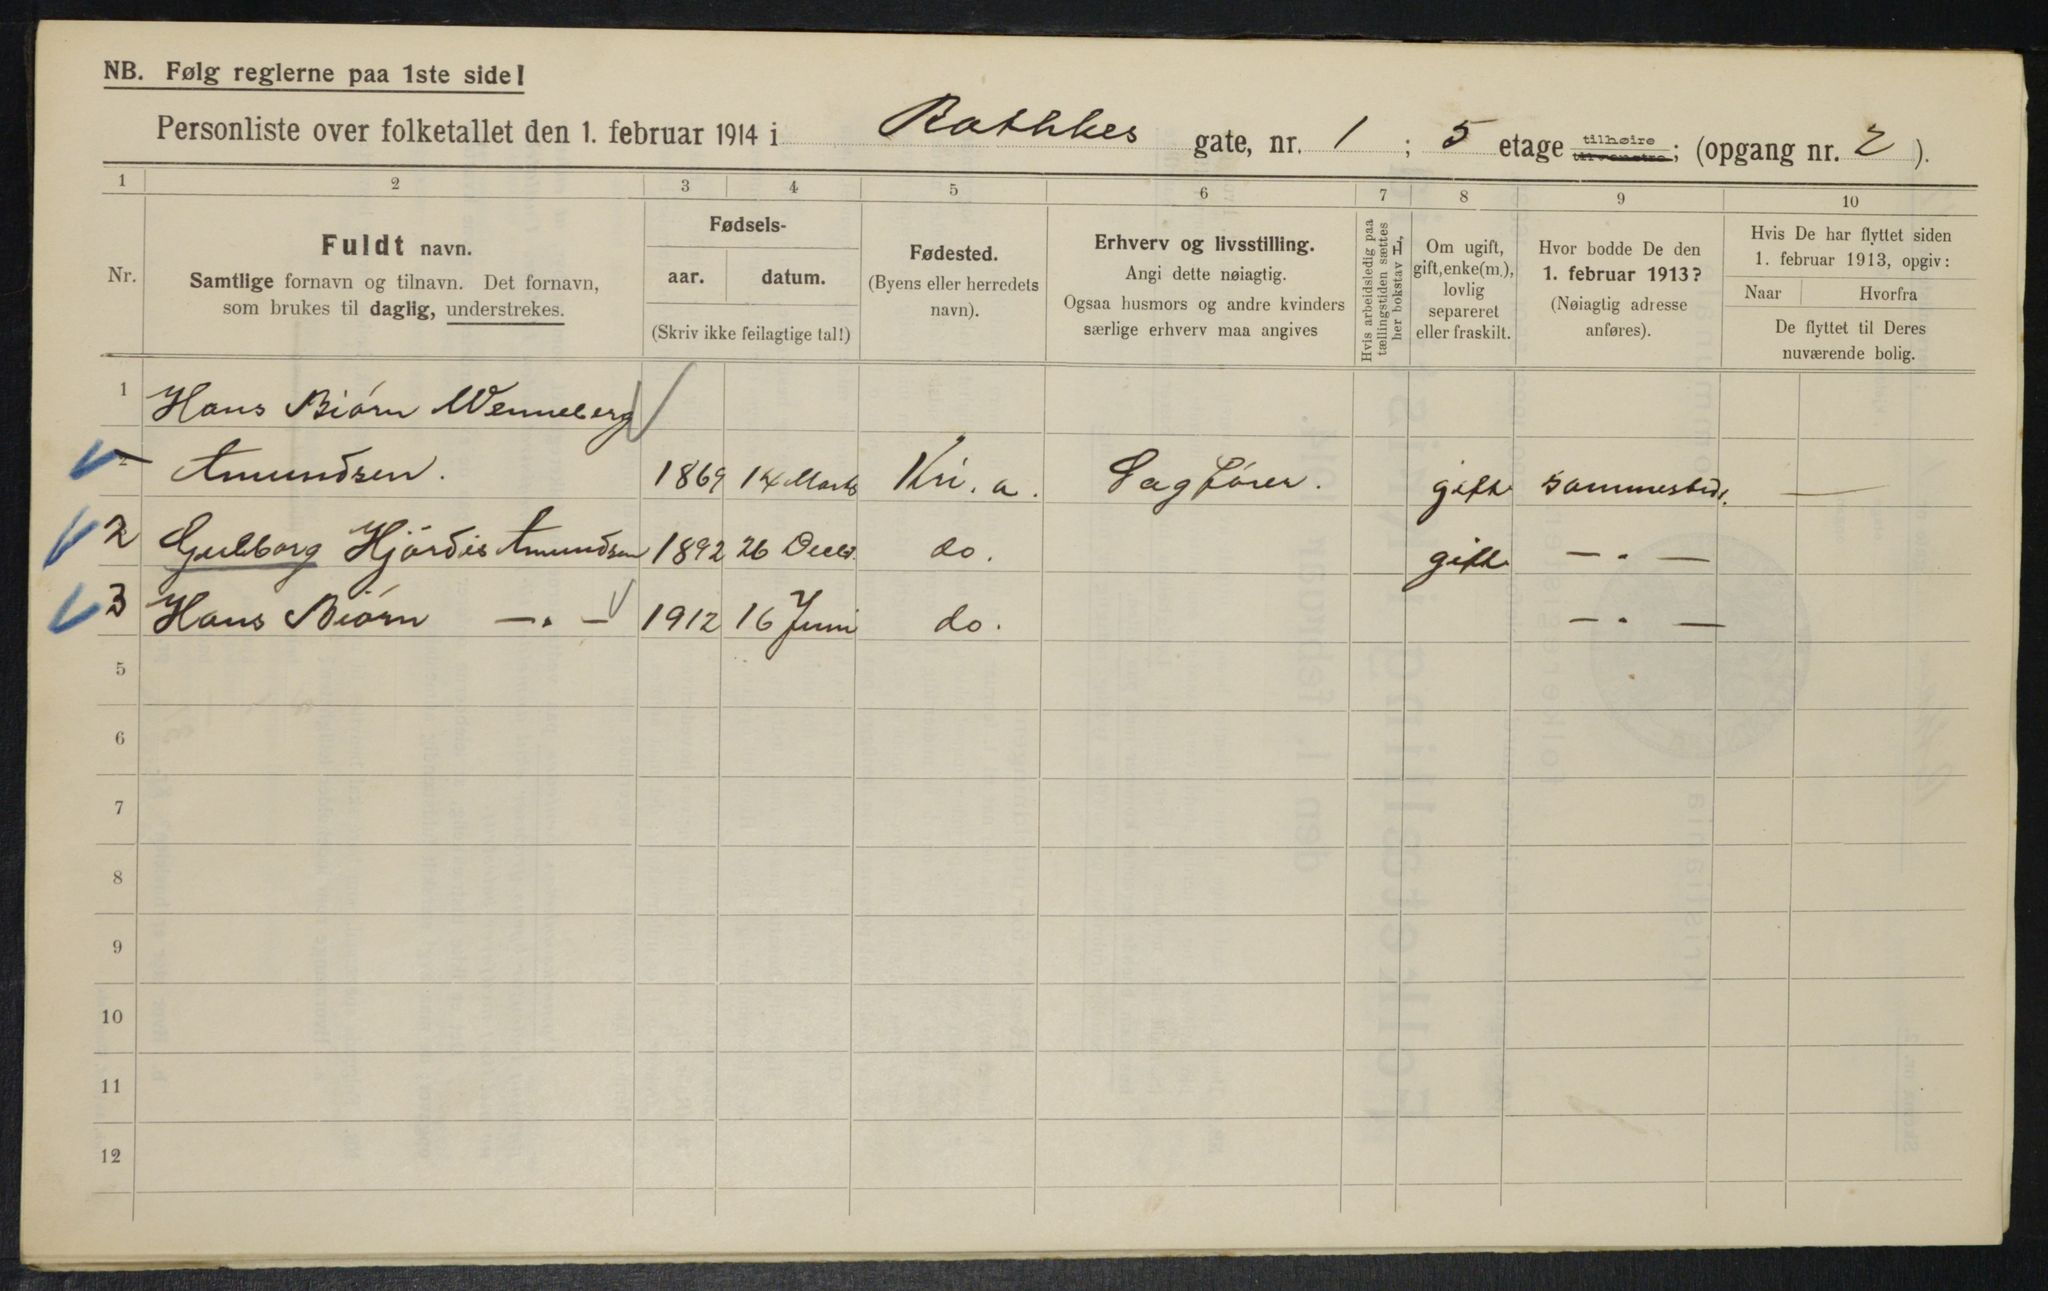 NB. Følg reglerne paa 1ste side!
Personliste over folketallet den 1. februar 1914 i Rathkes gate, nr. 1 ; 5 etage tilhøire tilvenstre; (opgang nr. 2 ).
1 2 3 4 5 6 7 8 9 10
Nr.
Fuldt navn.
Samtlige fornavn og tilnavn. Det fornavn,
som brukes til daglig, understrekes.
Fødsels-
aar. datum.
(Skriv ikke feilagtige tal!)
Fødested.
(Byens eller herredets
navn).
Erhverv og livsstilling.
Angi dette nøiagtig.
Ogsaa husmors og andre kvinders
særlige erhverv maa angives
Hvis arbeidsledig paa
tællingstiden sættes
her bokstav H,
Om ugift,
gift, enke(m.),
lovlig
separeret
eller fraskilt.
Hvor bodde De den
1. februar 1913?
(Nøiagtig adresse
anføres).
Hvis De har flyttet siden
1. februar 1913, opgiv:
Naar Hvorfra
De flyttet til Deres
nuværende bolig.
1 Hans Biörn Wenneberg
2 Amundsen. 1869 14 Marts Kri.a. Sagförer. gift sammested. —
2 Gulborg Hjördis Amundsen 1892 26 Decbr. do. gift — " —
3 Hans Biörn — " — 1912 16 Juni do. — " —
5
6
7
8
9
10
11
12